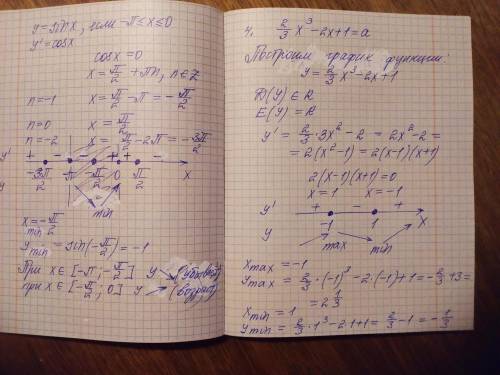 y = sin x, если -π ≤ x ≤ 0
y' = cos x
cos x = 0
x = π/2 + πn, n ∈ Z
n = -1 x = π/2 - π = -π/2
n = 0 x = π/2
n = -2 x = π/2 - 2π = -3π/2
y' + - - + + -
-3π/2 -π -π/2 0 π/2 x
y
min
x min = -π/2
y min = sin(-π/2) = -1
При x ∈ [-π; -π/2] y ↘ (убывает)
при x ∈ [-π/2; 0] y ↗ (возраст)
4. 2/3 x³ - 2x + 1 = a
Построим график функции:
y = 2/3 x³ - 2x + 1
D(y) ∈ R
E(y) = R
y' = 2/3 · 3x² - 2 = 2x² - 2 =
= 2(x² - 1) = 2(x-1)(x+1)
2(x-1)(x+1) = 0
x = 1 x = -1
y' + - +
-1 1 x
y max min
x max = -1
y max = 2/3 · (-1)³ - 2·(-1) + 1 = -2/3 + 3 =
= 2 1/3
x min = 1
y min = 2/3 · 1³ - 2·1 + 1 = 2/3 - 1 = -1/3